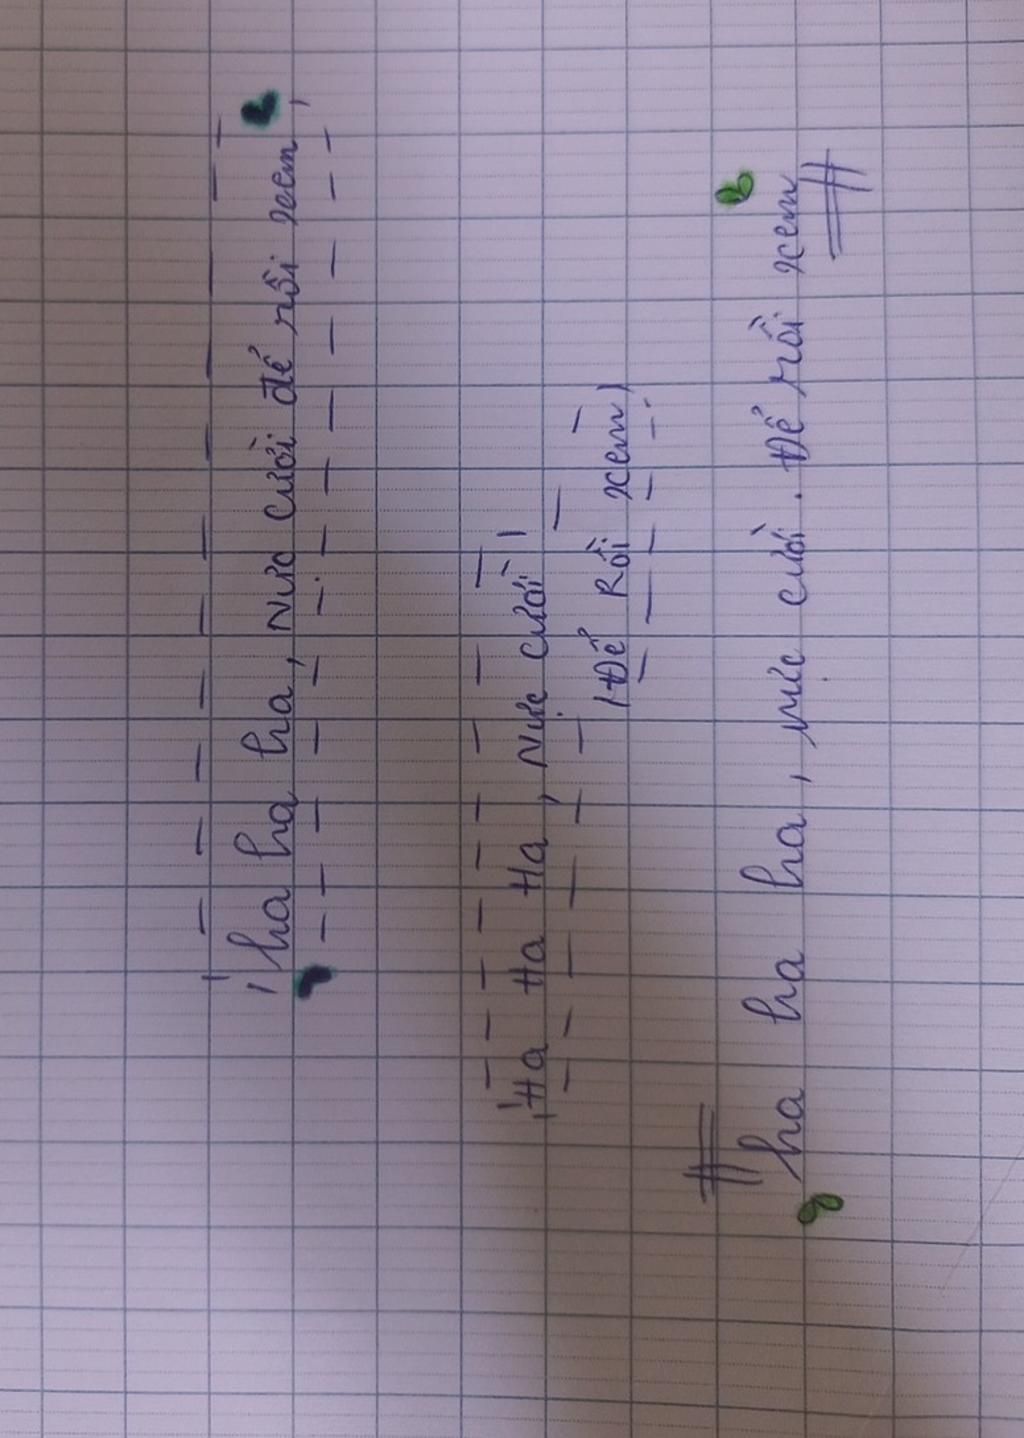 ha ha ha, Nực cười để rồi xem
Ha Ha Ha, Nực cười
Để Rồi xem
ha ha ha, nực cười. Để rồi xem